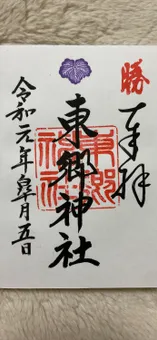 勝
奉拝
東郷神社
東郷
神社
令和元年皐月五日